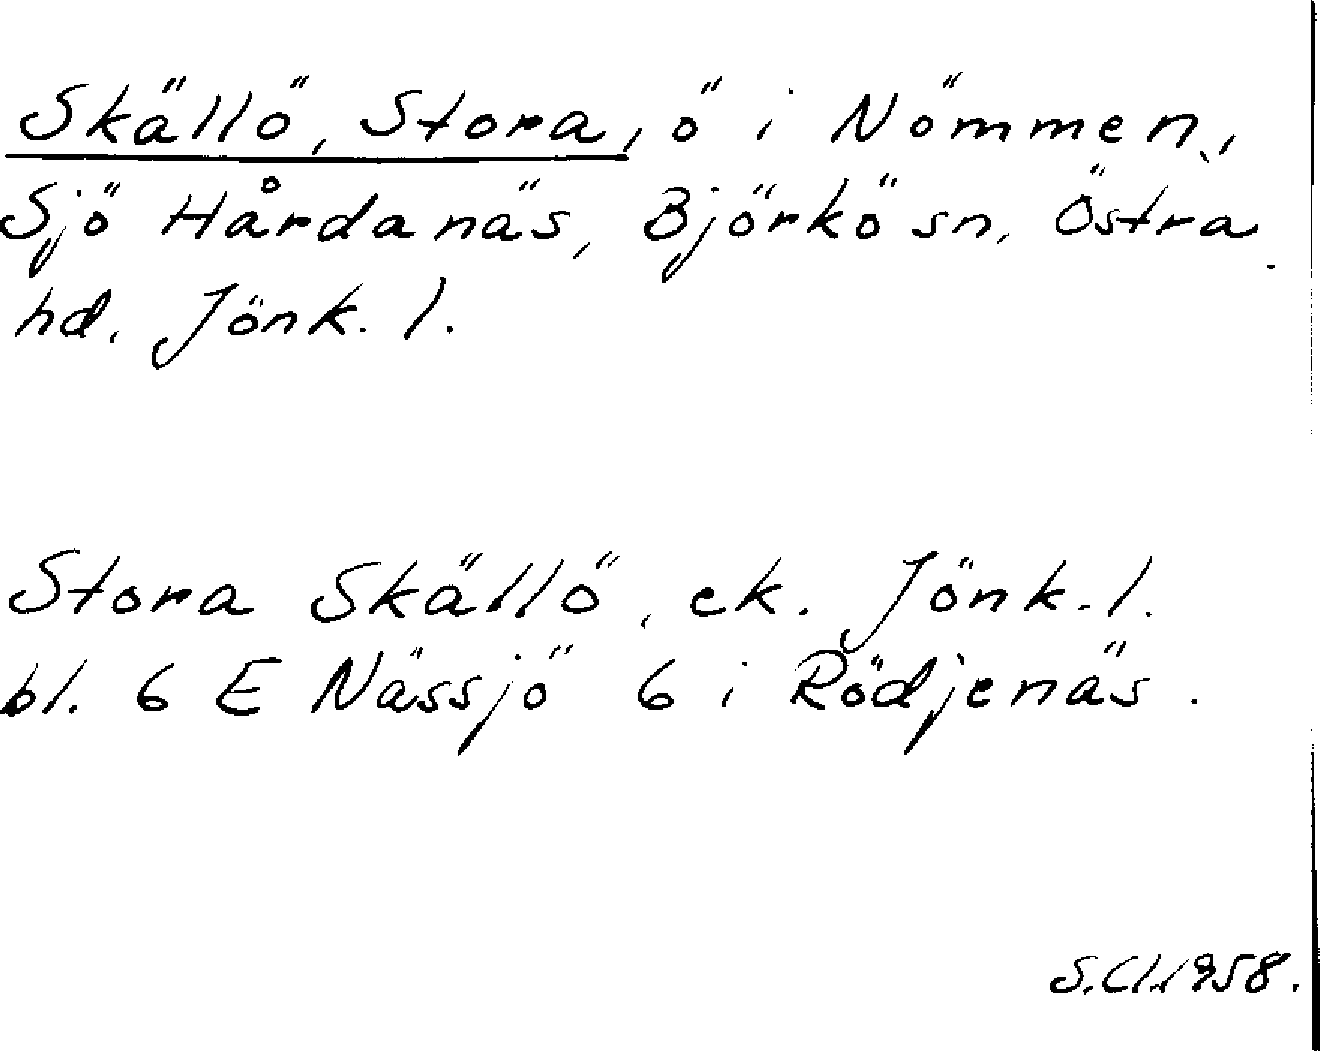 Skällö, Stora, ö i Nömmen,
Sjö Hårdanäs, Björkö sn, Östra
hd. Jönk. l.
Stora Skällö, ek. Jönk. l.
bl. 6 E Nässjö 6 i Rödjenäs.
S.Cl. 1958.